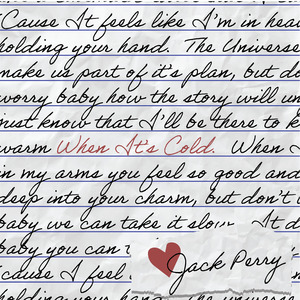 'Cause It feels like I'm in
holding your hand. The Universe
make us part of it's plan, but
worry baby how the story will
just know that I'll be there to
warm When It's Cold. When
in my arms you feel so good and
deep into your charm, but don't
baby we can take it It
baby you can
'cause I feel
Jack Perry
holding your the universe